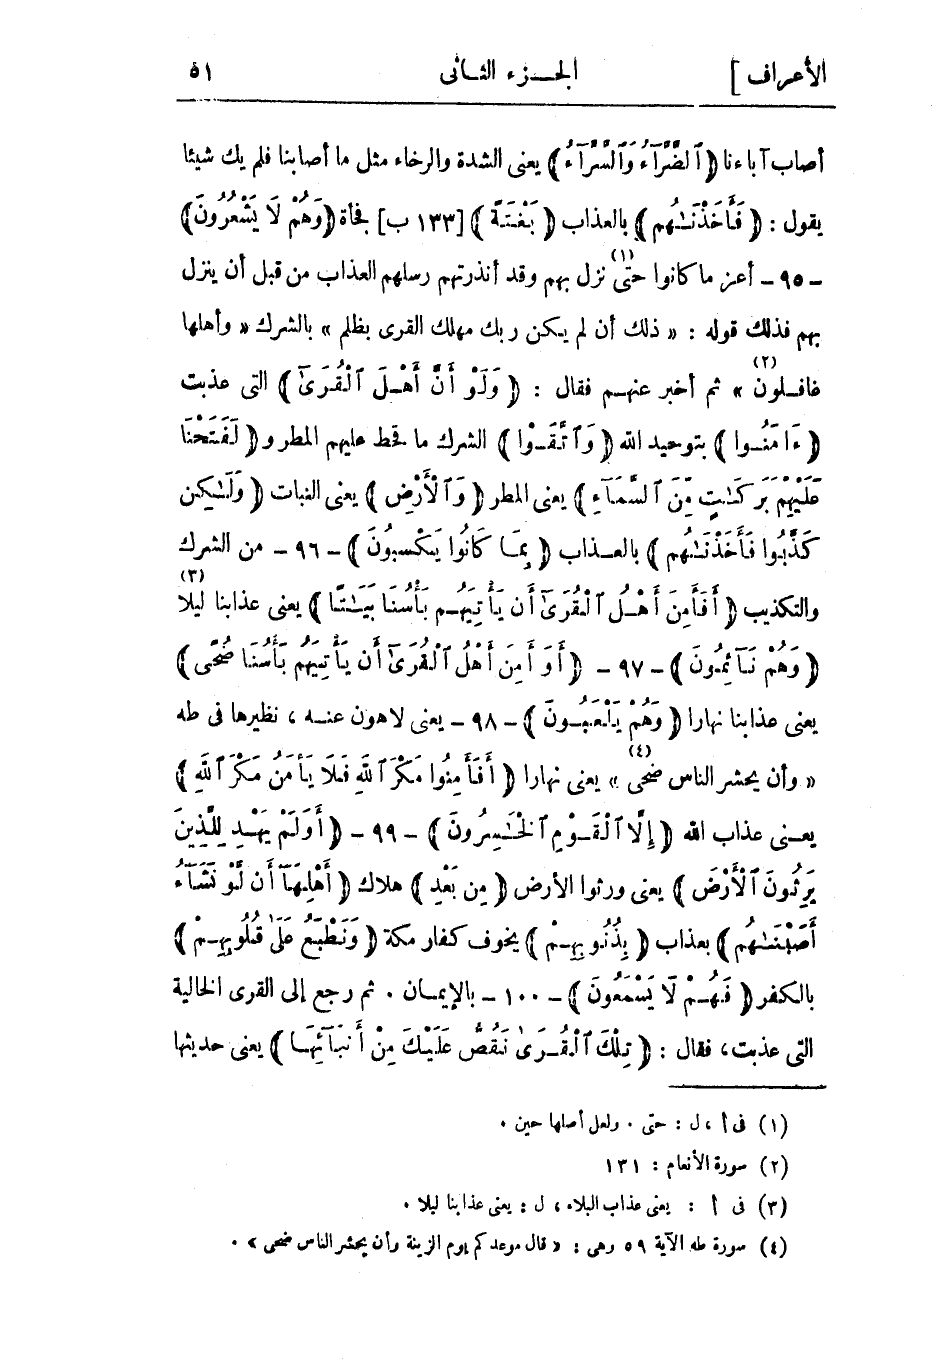 الأعراف ] الجزء الثانى ٥١
أصاب آباءنا ﴿ ٱلضَّرَّآءُ وَٱلسَّرَّآءُ ﴾ يعنى الشدة والرخاء مثل ما أصابنا فلم يك شيئا
يقول : ﴿ فَأَخَذْنَـٰهُم ﴾ بالعذاب ﴿ بَغْتَةً ﴾ [١٣٣ ب] فجأة ﴿وَهُمْ لَا يَشْعُرُونَ﴾
ـ ٩٥ ـ أعز ما كانوا حتى (١) نزل بهم وقد أنذرتهم رسلهم العذاب من قبل أن ينزل
بهم فذلك قوله : « ذلك أن لم يكن ربك مهلك القرى بظلم » بالشرك « وأهلها
غافلون (٢) » ثم أخبر عنهم فقال : ﴿ وَلَوْ أَنَّ أَهْلَ ٱلْقُرَىٰٓ ﴾ التى عذبت
﴿ ءَامَنُوا ﴾ بتوحيد الله ﴿ وَٱتَّقَوْا ﴾ الشرك ما قحط عليهم المطر و ﴿ لَفَتَحْنَا
عَلَيْهِمْ بَرَكَـٰتٍ مِّنَ ٱلسَّمَآءِ ﴾ يعنى المطر ﴿ وَٱلْأَرْضِ ﴾ يعنى النبات ﴿ وَلَـٰكِن
كَذَّبُوا فَأَخَذْنَـٰهُم ﴾ بالعذاب ﴿ بِمَا كَانُوا يَكْسِبُونَ ﴾ ـ ٩٦ ـ من الشرك
والتكذيب ﴿ أَفَأَمِنَ أَهْلُ ٱلْقُرَىٰٓ أَن يَأْتِيَهُم بَأْسُنَا بَيَـٰتًا ﴾ يعنى عذابنا ليلا (٣)
﴿ وَهُمْ نَآئِمُونَ ﴾ ـ ٩٧ ـ ﴿ أَوَ أَمِنَ أَهْلُ ٱلْقُرَىٰٓ أَن يَأْتِيَهُم بَأْسُنَا ضُحًى ﴾
يعنى عذابنا نهارا ﴿ وَهُمْ يَلْعَبُونَ ﴾ ـ ٩٨ ـ يعنى لاهون عنه ، نظيرها فى طه
« وأن يحشر الناس ضحى (٤) » يعنى نهارا ﴿ أَفَأَمِنُوا مَكْرَ ٱللَّهِ فَلَا يَأْمَنُ مَكْرَ ٱللَّهِ ﴾
يعنى عذاب الله ﴿ إِلَّا ٱلْقَوْمُ ٱلْخَـٰسِرُونَ ﴾ ـ ٩٩ ـ ﴿ أَوَلَمْ يَهْدِ لِلَّذِينَ
يَرِثُونَ ٱلْأَرْضَ ﴾ يعنى ورثوا الأرض ﴿ مِن بَعْدِ ﴾ هلاك ﴿ أَهْلِهَآ أَن لَّوْ نَشَآءُ
أَصَبْنَـٰهُم ﴾ بعذاب ﴿ بِذُنُوبِهِمْ ﴾ يخوف كفار مكة ﴿ وَنَطْبَعُ عَلَىٰ قُلُوبِهِمْ ﴾
بالكفر ﴿ فَهُمْ لَا يَسْمَعُونَ ﴾ ـ ١٠٠ ـ بالإيمان . ثم رجع إلى القرى الخالية
التى عذبت ، فقال : ﴿ تِلْكَ ٱلْقُرَىٰ نَقُصُّ عَلَيْكَ مِنْ أَنبَآئِهَا ﴾ يعنى حديثها
(١) فى أ ، ل : حتى . ولعل أصلها حين .
(٢) سورة الأنعام : ١٣١
(٣) فى أ : يعنى عذاب البلاء ، ل : يعنى عذابنا ليلا .
(٤) سورة طه الآية ٥٩ وهى : « قال موعدكم يوم الزينة وأن يحشر الناس ضحى » .